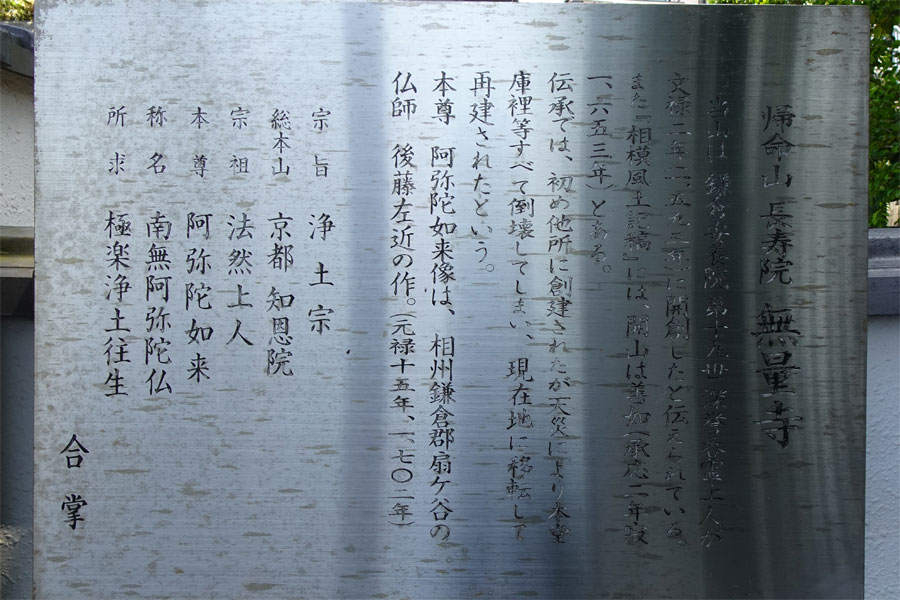 帰命山 長寿院 無量寺
当山は 鎌倉安養院 第十九世 深誉呑霊上人が
文禄二年(一、五九三年)に開創したと伝えられている。
また『相模風土記稿』には、開山は善如(承応二年寂
一、六五三年)とある。
伝承では、初め他所に創建されたが天災により本堂
庫裡等すべて倒壊してしまい、現在地に移転して
再建されたという。
本尊 阿弥陀如来像は、相州鎌倉郡扇ケ谷の
仏師 後藤左近の作。(元禄十五年、一、七〇二年)。
宗旨 浄土宗
総本山 京都 知恩院
宗祖 法然上人
本尊 阿弥陀如来
称名 南無阿弥陀仏
所求 極楽浄土往生
合掌